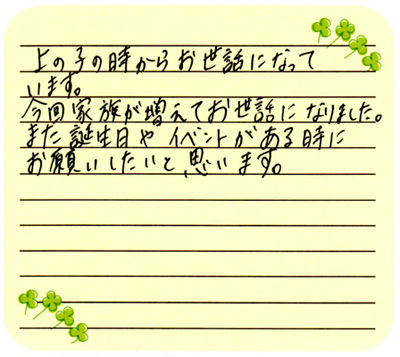 上の子の時からお世話になって
います。
今回家族が増えてお世話になりました。
また誕生日やイベントがある時に
お願いしたいと思います。